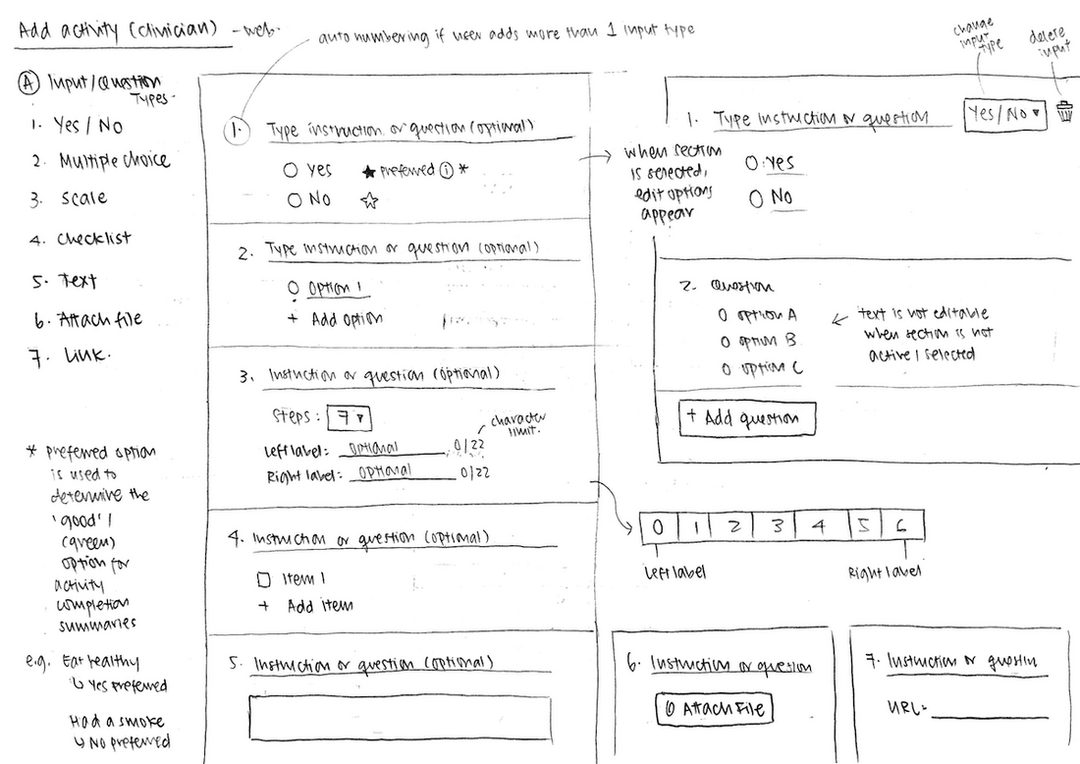 Add activity (clinician) - web.
auto numbering if user adds more than 1 input type
change
input
type
delete
input
A Input/Question
Types.
1. Yes / No
2. Multiple choice
3. Scale
4. Checklist
5. Text
6. Attach file
7. Link.
* preferred option
is used to
determine the
'good' /
(green)
option for
activity
completion
summaries
e.g. Eat healthy
↳ Yes preferred
Had a smoke
↳ No preferred
1. Type instruction or question (optional)
○ Yes ★ preferred ⓘ *
○ No ☆
2. Type instruction or question (optional)
○ Option 1
+ Add option
3. Instruction or question (optional)
Steps: 7 ▾
character
limit.
Left label: optional 0/22
Right label: optional 0/22
4. Instruction or question (optional)
□ Item 1
+ Add item
5. Instruction or question (optional)
→ when section
is selected,
edit options
appear
1. Type instruction or question
Yes/No ▾
○ Yes
○ No
2. Question
○ option A
○ option B
○ option C
← text is not editable
when section is not
active / selected
+ Add question
0 1 2 3 4 5 6
Left label
Right label
6. Instruction or question
Attach File
7. Instruction or question
URL: